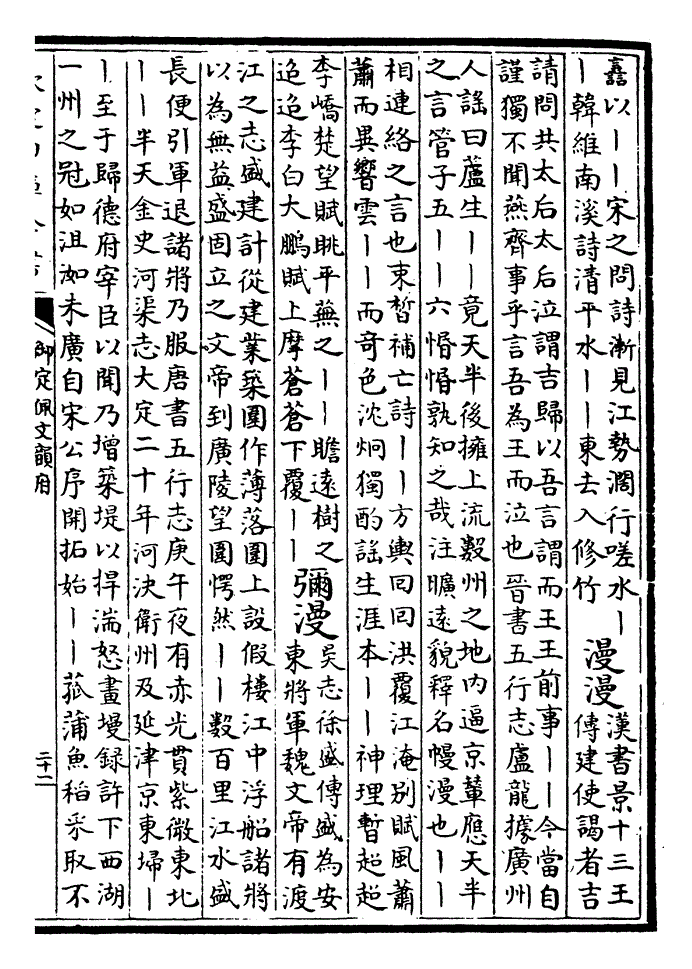 嚞以丨丨宋之問詩漸見江勢濶行嗟水丨
丨韓維南溪詩清平水丨丨東去入修竹
漫漫
漢書景十三王
傳建使謁者吉
請問共太后太后泣謂吉歸以吾言謂而王王前事丨丨今當自
謹獨不聞燕齊事乎言吾為王而泣也晉書五行志盧龍據廣州
人謡曰蘆生丨丨竟天半後擁上流數州之地内逼京輦應天半
之言管子五丨丨六惛惛孰知之哉注曠遠貌釋名幔漫也丨丨
相連絡之言也束晳補亡詩丨丨方輿回回洪覆江淹别賦風蕭
蕭而異響雲丨丨而奇色沈炯獨酌謡生涯本丨丨神理暫超超
李嶠楚望賦眺平蕪之丨丨瞻遠樹之
迢迢李白大鵬賦上摩蒼蒼下覆丨丨
彌漫
吳志徐盛傳盛為安
東將軍魏文帝有渡
江之志盛建計從建業築圍作薄落圍上設假樓江中浮船諸將
以為無益盛固立之文帝到廣陵望圍愕然丨丨數百里江水盛
長便引軍退諸將乃服唐書五行志庚午夜有赤光貫紫微東北
丨丨半天金史河渠志大定二十年河決衛州及延津京東埽丨
丨至于歸德府宰臣以聞乃增築堤以捍湍怒畫墁録許下西湖
一州之冠如沮洳未廣自宋公序開拓始丨丨菰蒲魚稻采取不
御定佩文韻府
二十二